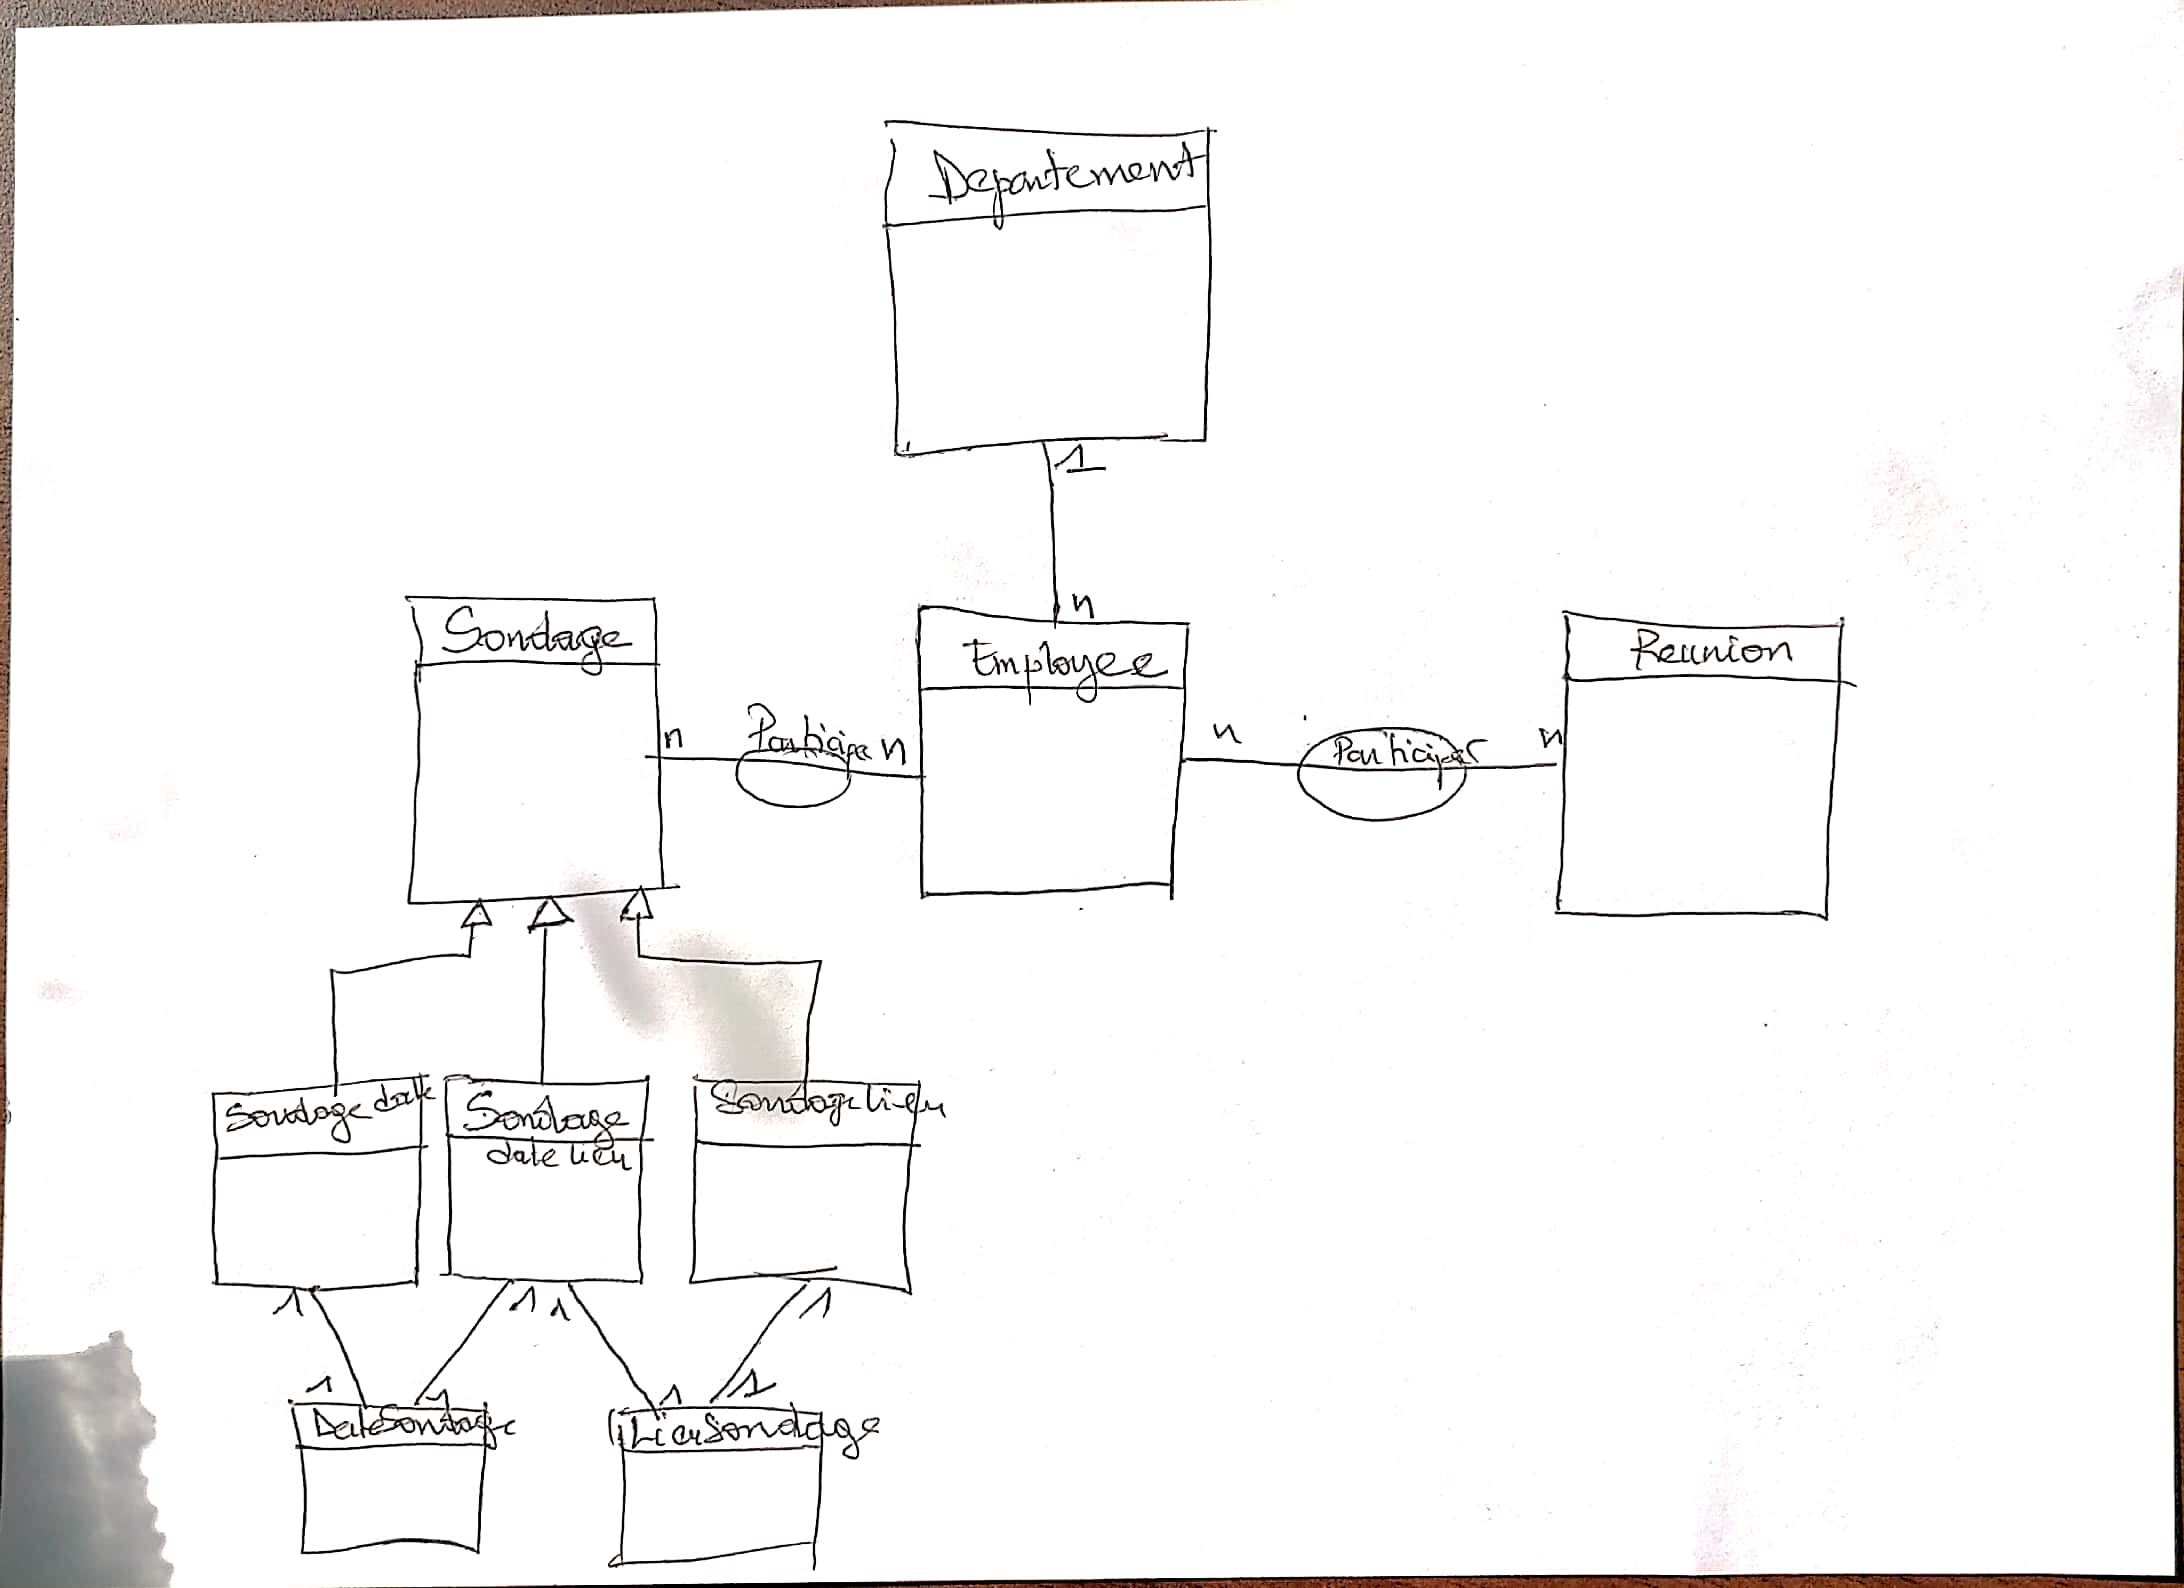 Departement
1
n
Sondage
Employee
Reunion
n
Participe
n
n
Participer
n
Sondage date
Sondage
date lieu
Sondage lieu
1
1
1
1
1
1
1
1
DateSondage
LieuSondage